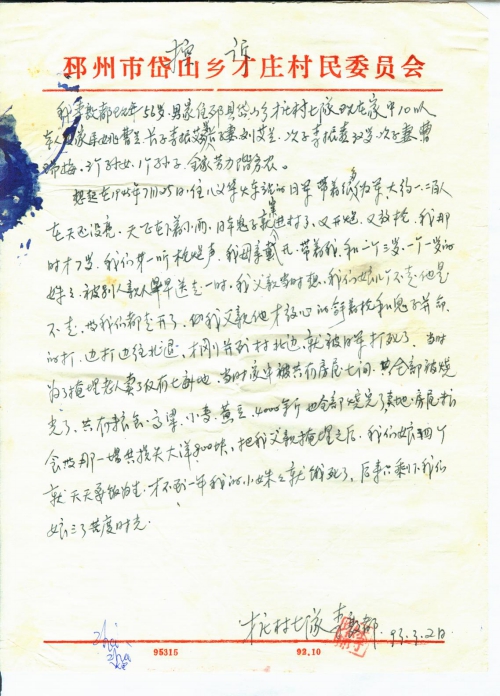 控 诉
邳州市岱山乡才庄村民委员会
我李敬都现年56岁,男,家住邳县岱山乡才庄村七队,现在家中10口人
本人,妻 长子李振 妻刘艾兰,次子李振 32岁,次子妻曹
梅,3个孙女,1个孙子,全家劳力 务农。
想起在1945年7月25日,住 火车站的日军带着 伪军大约一二百人
在天还没亮,天飞在下着小雨,日本鬼子就进村了,又开炮,又放枪,我那
时才7岁,我们第一听枪炮声,我母亲戴氏,带着我,和一个3岁,一个一岁的
妹妹,被别人 早送走一时,我父亲当时想,我们娘几个不走,他是
不走,当我们都走开了,以我父亲他才放心的 着枪和鬼子并命
的打,边打边往北退,才刚 到村北边,就被日军打死了,当时
为了掩埋老人卖了仅有七亩地,当时家中被共有房屋七间,共全部被烧
光了,共有粮食,高粱,小麦,黄豆,4000斤也全部烧完了卖地,房屋粮
食当那一切共损失大洋800块,把我父亲掩埋之后,我们娘四个
就天天要饭为生,才不到一年我的小妹妹就饿死了,后来只剩下我们
娘三了共度时光.
才庄村七队 李敬都. 93.3.2日
zhai
zha
95315 92.10